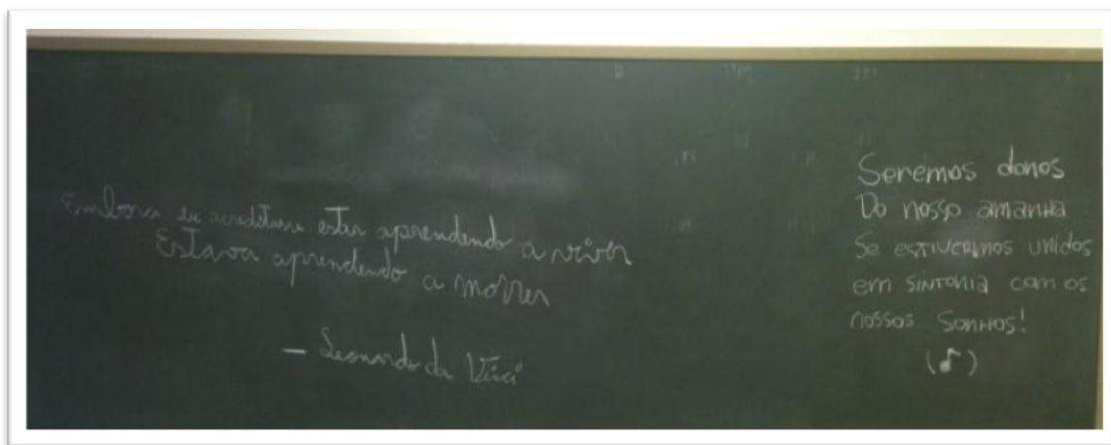 Embora eu acreditasse estar aprendendo a viver
Estava aprendendo a morrer
– Leonardo da Vinci
Seremos donos
Do nosso amanhã
Se estivermos unidos
em sintonia com os
nossos sonhos!
(♪)